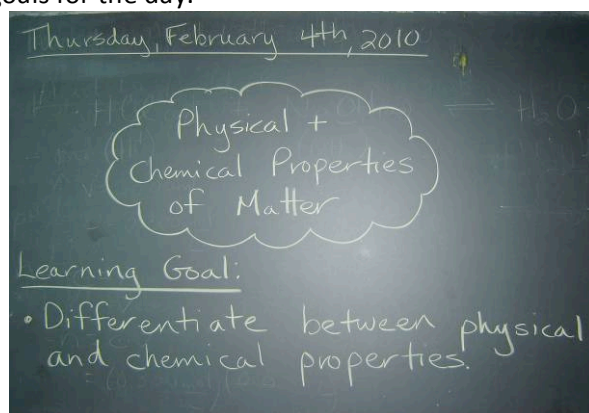 goals for the day.
Thursday, February 4th, 2010
Physical +
Chemical Properties
of Matter
Learning Goal:
• Differentiate between physical
and chemical properties.